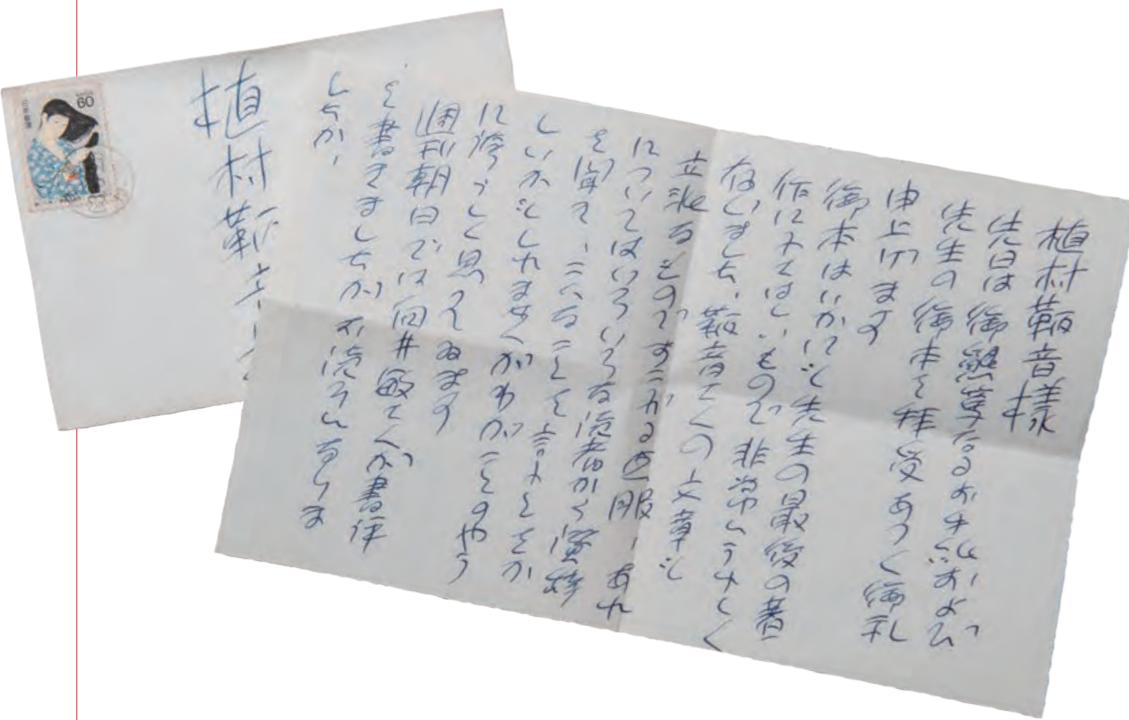 60
日本郵便
植村鞆音
植村鞆音様
先日は御懇篤なるお手紙および
先生の御本を拝受あつく御礼
申上げます
御本はいかにも先生の最後の著
作にふさはしいもので非常にうれしく
存じました、鞆音さんの文章も
立派なものですつかり 服、あれ
についてはいろいろな読者から
こんなことを言ふとをか
しいかもしれませんがわがことのやう
に誇らしく思つてゐます
週刊朝日では向井敏さんが書評
を書きましたがお読みになりま
したか、